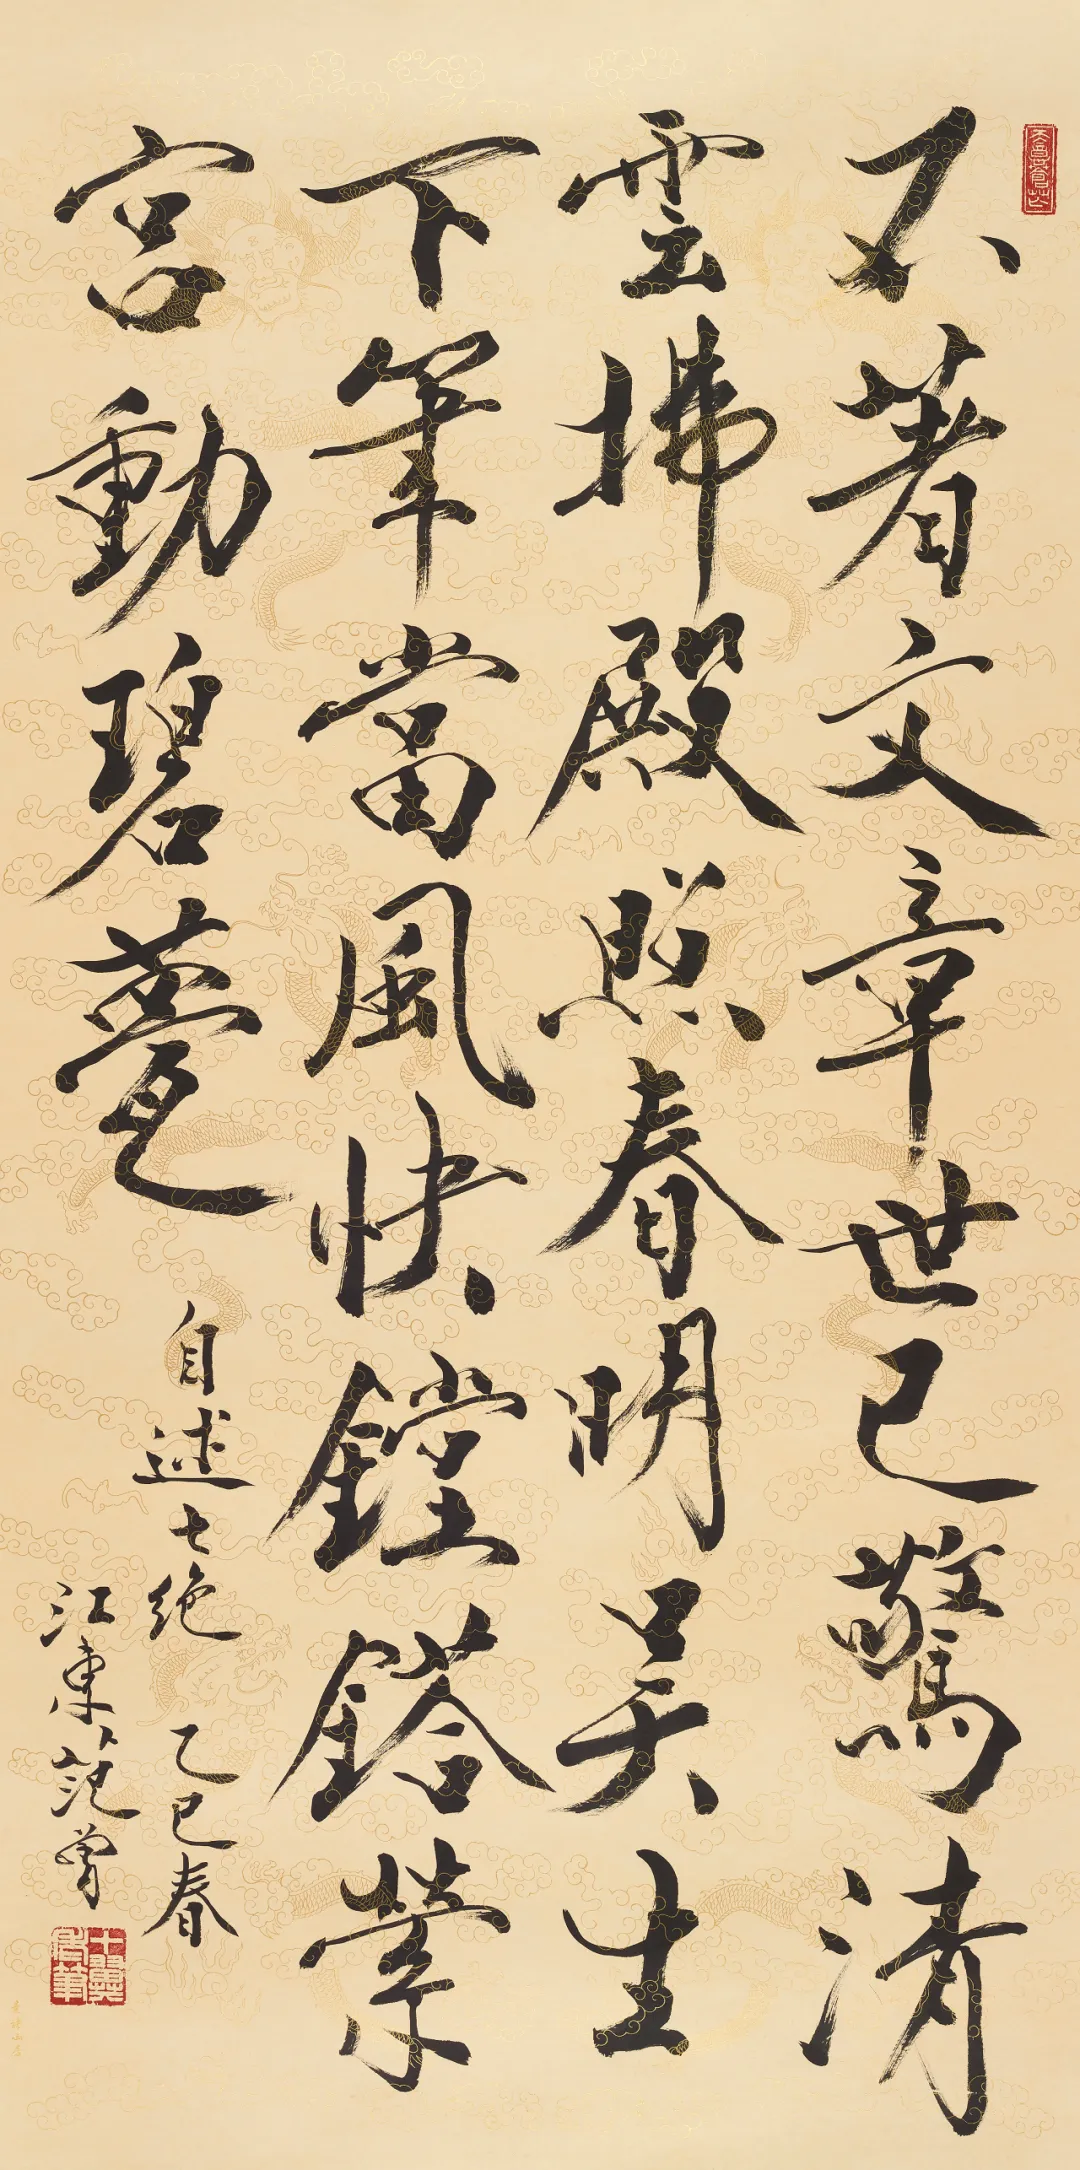 不著文章世已驚清
雲拂殿照春明吴生
下筆當風快鏜鎝縈
宫動碧甍
自述七绝 乙巳春
江東范曾